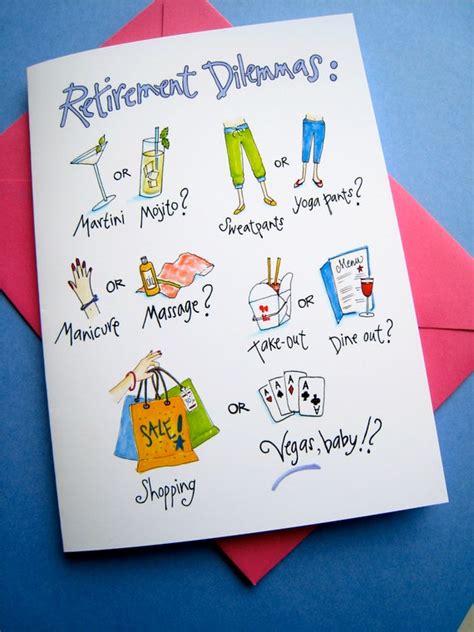 Retirement Dilemmas:
Martini OR Mojito?
Sweatpants OR Yoga pants?
Manicure OR Massage?
Take-out OR Dine out?
Menu
SALE!
Shopping OR Vegas, baby!?
A A A A